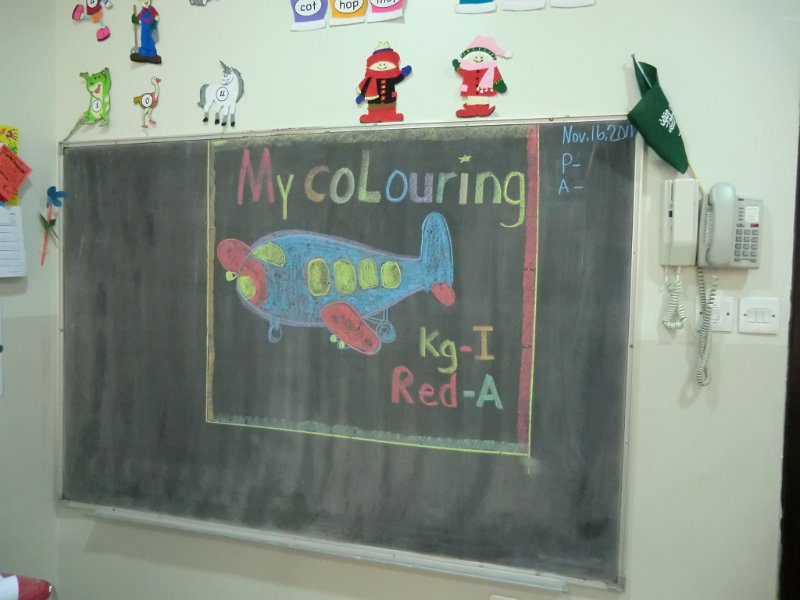 cat hop
i o u
My coLouring
Nov.16,2011
P-
A-
Kg-I
Red-A